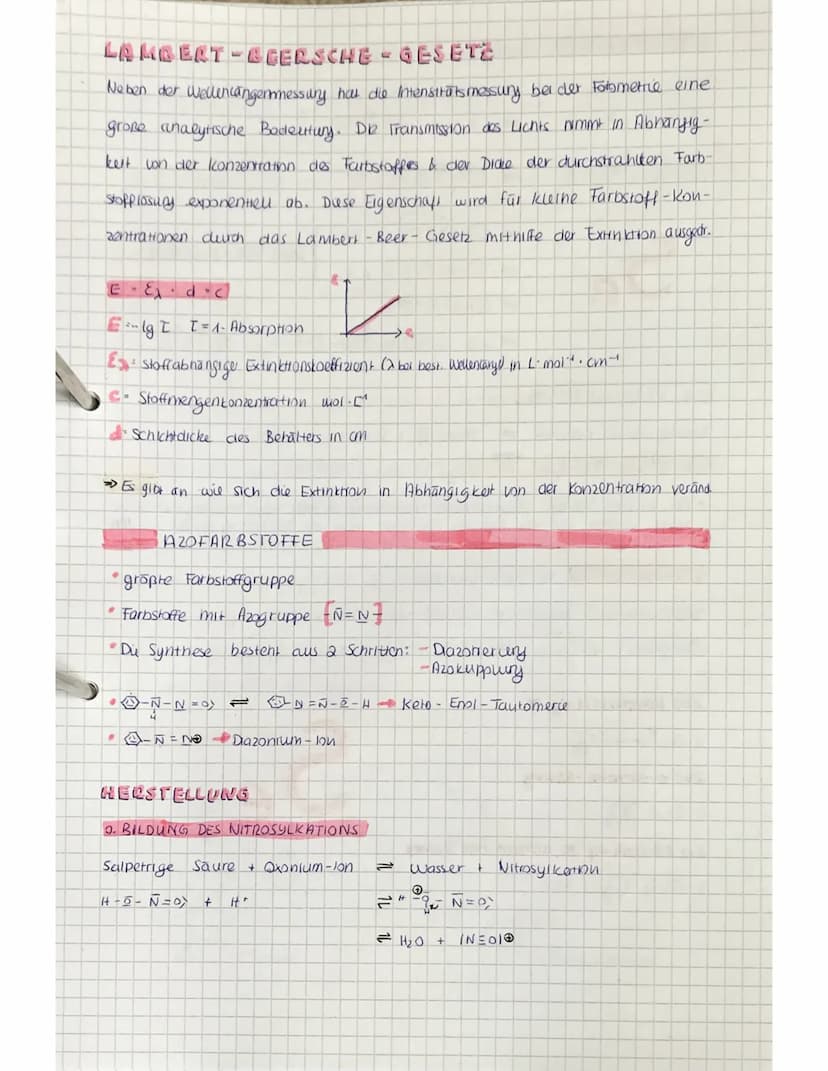 LAMBERT-BEERSCHE-GESETZ
Neben der Wellenlängenmessung hat die Intensitätsmessung bei der Fotometrie eine
große analytische Bedeutung. Die Transmission des Lichts nimmt in Abhängig-
keit von der Konzentration des Farbstoffes & der Dicke der durchstrahlten Farb-
stofflösung exponentiell ab. Diese Eigenschaft wird für kleine Farbstoff-Kon-
zentrationen durch das Lambert-Beer-Gesetz mithilfe der Extinktion ausgedr.
E = ελ · d · c
E
c
E = -lg T T = 1 - Absorption
ελ = stoffabhängige Extinktionskoeffizient (λ bei best. Wellenlänge) in L·mol⁻¹·cm⁻¹
c = Stoffmengenkonzentration mol·L⁻¹
d = Schichtdicke des Behälters in cm
⇒ Es gibt an wie sich die Extinktion in Abhängigkeit von der Konzentration veränd.
AZOFARBSTOFFE
• größte Farbstoffgruppe
• Farbstoffe mit Azogruppe [N̄=N̲]
• Die Synthese besteht aus 2 Schritten: - Diazotierung
- Azokupplung
• -N̄-N=O⟩ ⇌ -N=N̄-O̅-H → Keto-Enol-Tautomerie
H
• -N̄=N⊕ → Diazonium-Ion
HERSTELLUNG
0. BILDUNG DES NITROSYLKATIONS
Salpetrige Säure + Oxonium-Ion ⇌ Wasser + Nitrosylkation
H-O̅-N̄=O⟩ + H⁺ ⇌ H-O⊕-N̄=O⟩
H
⇌ H₂O + |N≡O|⊕